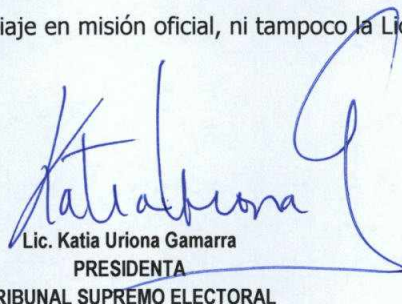 iaje en misión oficial, ni tampoco la Lic
Katia Uriona G
Lic. Katia Uriona Gamarra
PRESIDENTA
RIBUNAL SUPREMO ELECTORAL